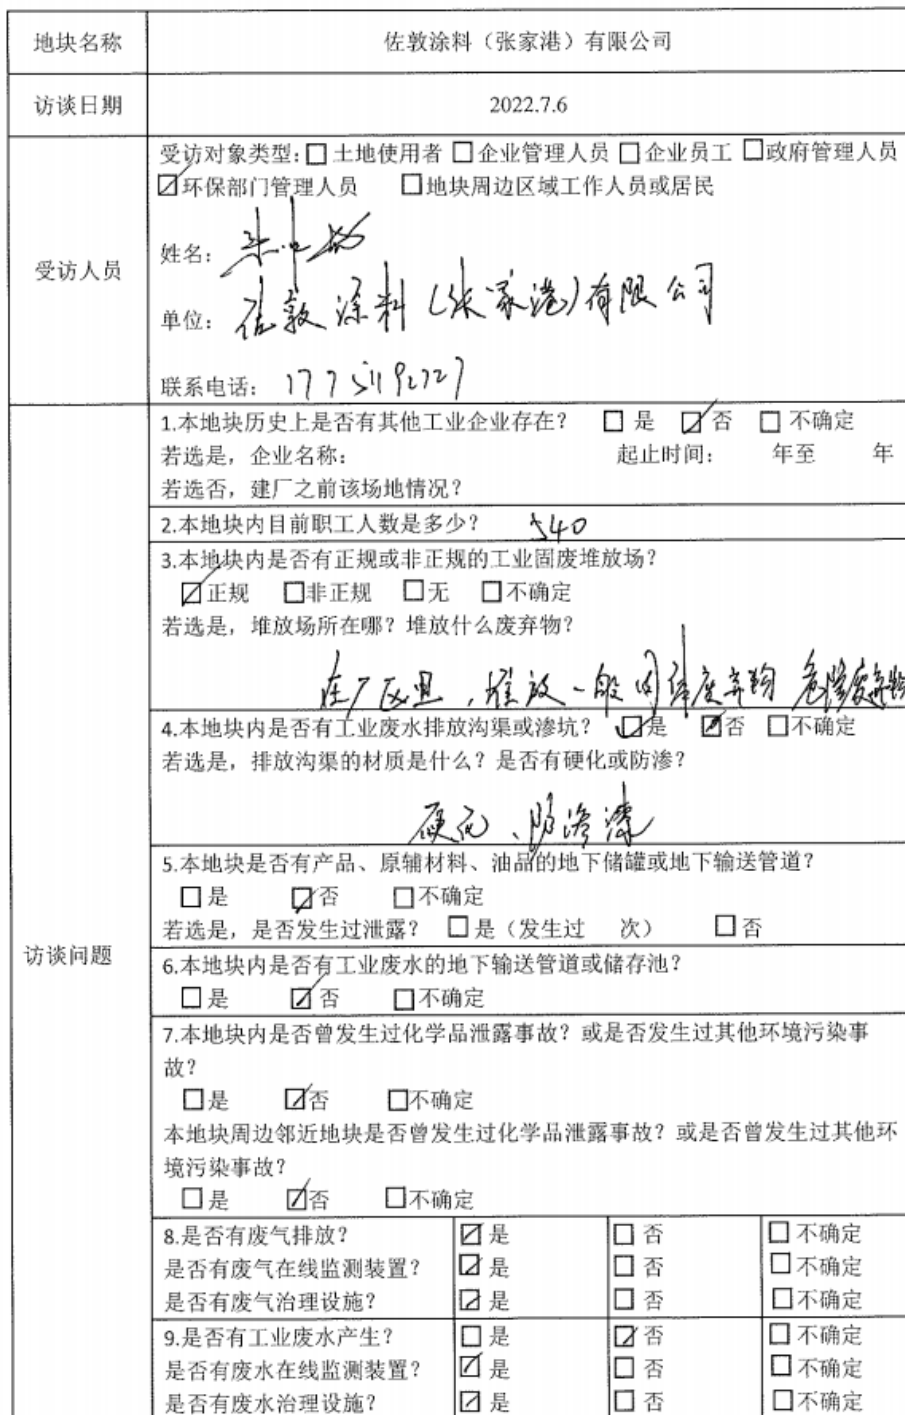 地块名称 佐敦涂料（张家港）有限公司
访谈日期 2022.7.6
受访人员
受访对象类型：☐ 土地使用者 ☐ 企业管理人员 ☐ 企业员工 ☐ 政府管理人员
☑ 环保部门管理人员 ☐ 地块周边区域工作人员或居民
姓名：
单位：佐敦涂料(张家港)有限公司
联系电话：
访谈问题
1.本地块历史上是否有其他工业企业存在？ ☐ 是 ☑ 否 ☐ 不确定
若选是，企业名称： 起止时间： 年至 年
若选否，建厂之前该场地情况？
2.本地块内目前职工人数是多少？ 540
3.本地块内是否有正规或非正规的工业固废堆放场？
☑ 正规 ☐ 非正规 ☐ 无 ☐ 不确定
若选是，堆放场所在哪？堆放什么废弃物？
在厂区里，堆放一般固体废弃物 危险废弃物
4.本地块内是否有工业废水排放沟渠或渗坑？ ☑ 是 ☑ 否 ☐ 不确定
若选是，排放沟渠的材质是什么？是否有硬化或防渗？
硬化、防渗漆
5.本地块是否有产品、原辅材料、油品的地下储罐或地下输送管道？
☐ 是 ☑ 否 ☐ 不确定
若选是，是否发生过泄露？ ☐ 是（发生过 次） ☐ 否
6.本地块内是否有工业废水的地下输送管道或储存池？
☐ 是 ☑ 否 ☐ 不确定
7.本地块内是否曾发生过化学品泄露事故？或是否发生过其他环境污染事
故？
☐ 是 ☑ 否 ☐ 不确定
本地块周边邻近地块是否曾发生过化学品泄露事故？或是否曾发生过其他环
境污染事故？
☐ 是 ☑ 否 ☐ 不确定
8.是否有废气排放？ ☑ 是 ☐ 否 ☐ 不确定
是否有废气在线监测装置？ ☑ 是 ☐ 否 ☐ 不确定
是否有废气治理设施？ ☑ 是 ☐ 否 ☐ 不确定
9.是否有工业废水产生？ ☐ 是 ☑ 否 ☐ 不确定
是否有废水在线监测装置？ ☑ 是 ☐ 否 ☐ 不确定
是否有废水治理设施？ ☑ 是 ☐ 否 ☐ 不确定